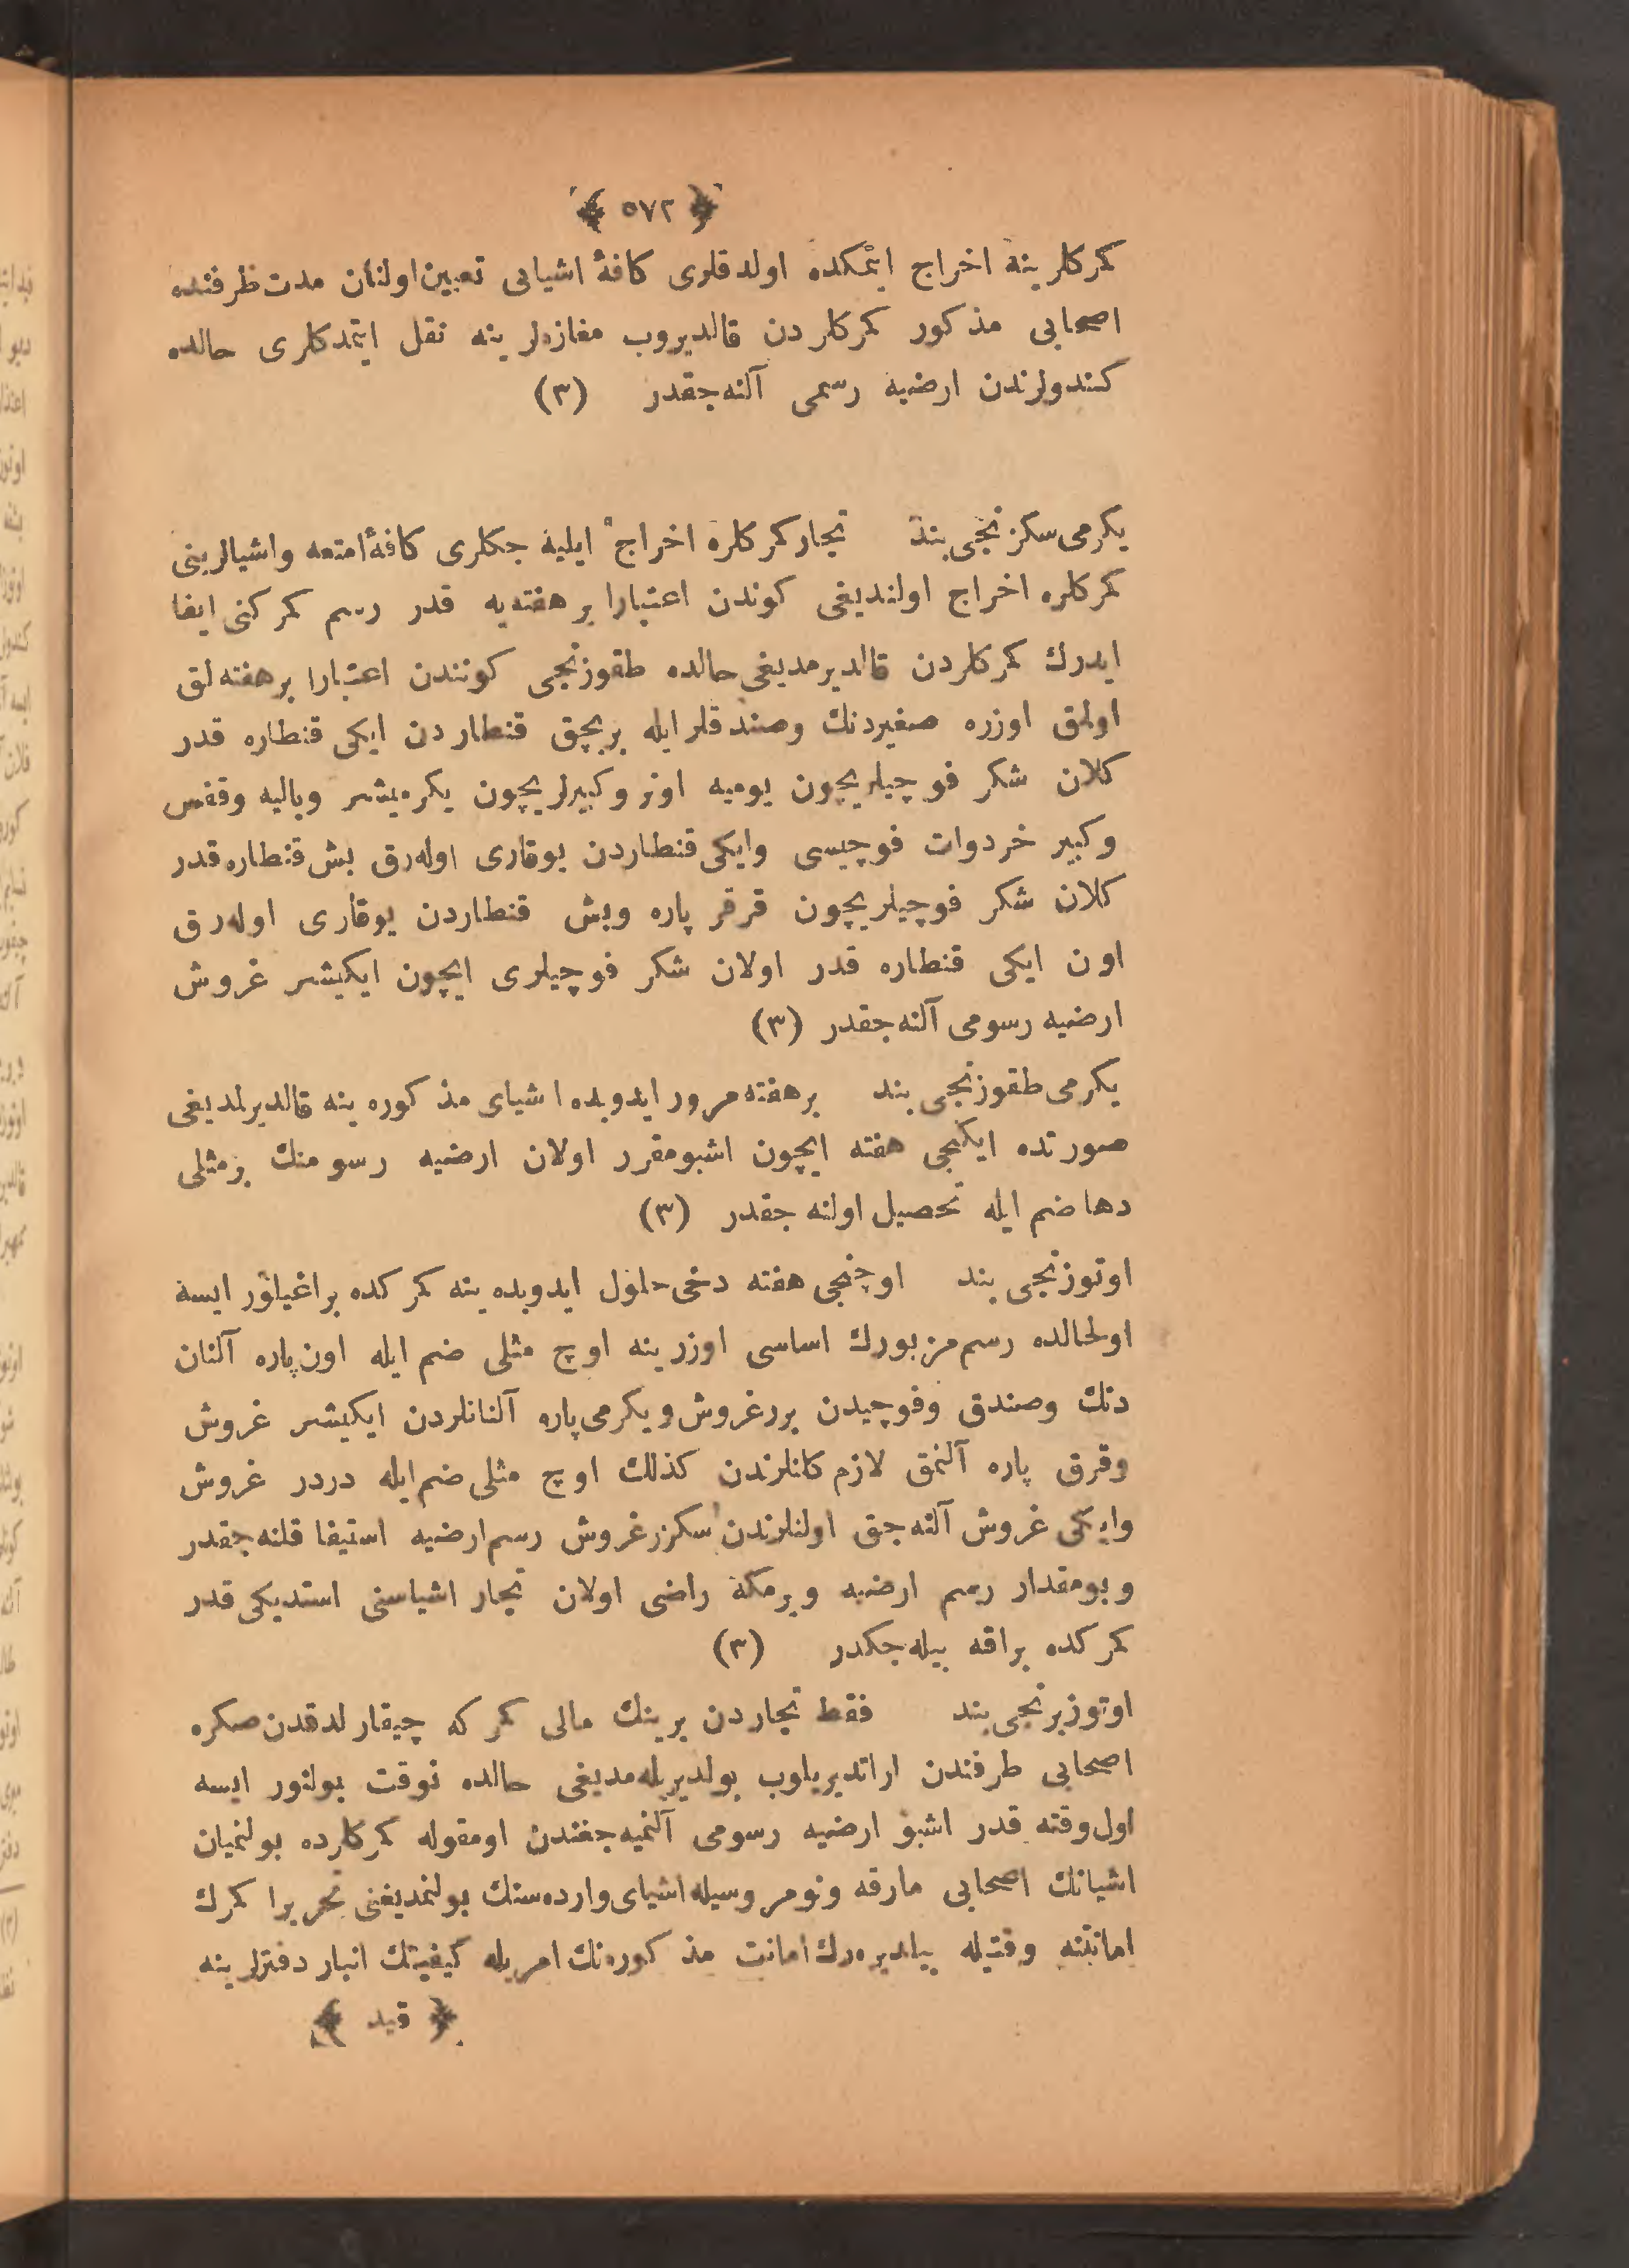 ﴿ ٥٧٢ ﴾
كمركلرینه اخراج ایتمكده اولدقلری كافهٔ اشیایی تعیین اولنان مدت ظرفنده
اصحابی مذكور كمركلردن قالدیروب مغازه‌لرینه نقل ایتمدكلری حالده
كندولرندن ارضیه رسمی آلنه‌جقدر (٣)
یكرمی سكزنجی بند تجار كمركلره اخراج ایلیه جكلری كافهٔ امتعه واشیالرینی
كمركلره اخراج اولندیغی كوندن اعتبارا بر هفته‌یه قدر رسم كمركنی ایفا
ایدرك كمركلردن قالدیرمدیغی حالده طقوزنجی كونندن اعتبارا بر هفته‌لق
اولمق اوزره صغیردنك وصندقلر ایله بربچق قنطاردن ایكی قنطاره قدر
كلان شكر فوچیلریچون یومیه اونر وكبیرلریچون یكرمیشر وبالیه وقفس
وكبیر خردوات فوچیسی وایكی قنطاردن یوقاری اوله‌رق بش قنطاره قدر
كلان شكر فوچیلریچون قرقر پاره وبش قنطاردن یوقاری اوله‌رق
اون ایكی قنطاره قدر اولان شكر فوچیلری ایچون ایكیشر غروش
ارضیه رسومی آلنه‌جقدر (٣)
یكرمی طقوزنجی بند بر هفته مرور ایدوبده اشیای مذكوره ینه قالدیرلدیغی
صورتده ایكنجی هفته ایچون اشبو مقرر اولان ارضیه رسومنك برمثلی
دها ضم ایله تحصیل اولنه جقدر (٣)
اوتوزنجی بند اوچنجی هفته دخی حلول ایدوبده ینه كمركده براغیلور ایسه
اولحالده رسم مزبورك اساسی اوزرینه اوچ مثلی ضم ایله اون پاره آلنان
دنك وصندق وفوچیدن بررغروش ویكرمی پاره آلنانلردن ایكیشر غروش
وقرق پاره آلنمق لازم كلنلرندن كذلك اوچ مثلی ضم ایله دردر غروش
وایكی غروش آلنه‌جق اولنلرندن سكزرغروش رسم ارضیه استیفا قلنه‌جقدر
وبومقدار رسم ارضیه ویرمكه راضی اولان تجار اشیاسنی استدیكی قدر
كمركده براقه بیله‌جكدر (٣)
اوتوزبرنجی بند فقط تجاردن برینك مالی كمركه چیقارلدقدن صكره
اصحابی طرفندن اراتدیریلوب بولدیریله‌مدیغی حالده نوقت بولنور ایسه
اول وقته قدر اشبو ارضیه رسومی آلنمیه‌جغندن اومقوله كمركلرده بولنمیان
اشیانك اصحابی مارقه ونومروسیله اشیای وارده‌سنك بولنمدیغنی تحریرا كمرك
امانتنه وقتیله بیلدیره‌رك امانت مذكوره‌نك امریله كیفیتك انبار دفترلرینه
﴿ قید ﴾